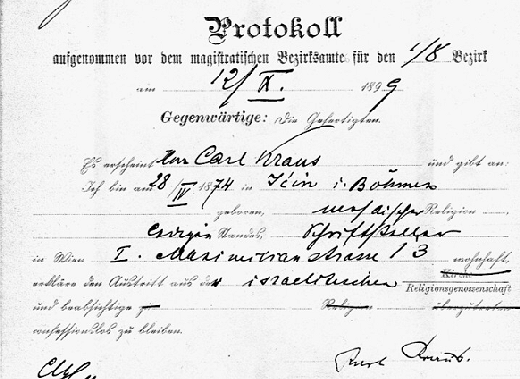 Protokoll
aufgenommen vor dem magistratischen Bezirksamte für den 1/8 Bezirk
am 12/X. 1899
Gegenwärtige: Die Gefertigten.
Es erscheint Herr Carl Kraus und gibt an:
Ich bin am 28/IV 1874 in Jičin i. Böhmen
geboren, mosaischer Religion
ledigen Standes, Schriftsteller
in Wien I. Maximilianstrasse 13 wohnhaft,
erkläre den Austritt aus der israelitischen Kirche Religionsgenossenschaft
und beabsichtige zu Religion überzutreten
confessionslos zu bleiben.
Karl Kraus.